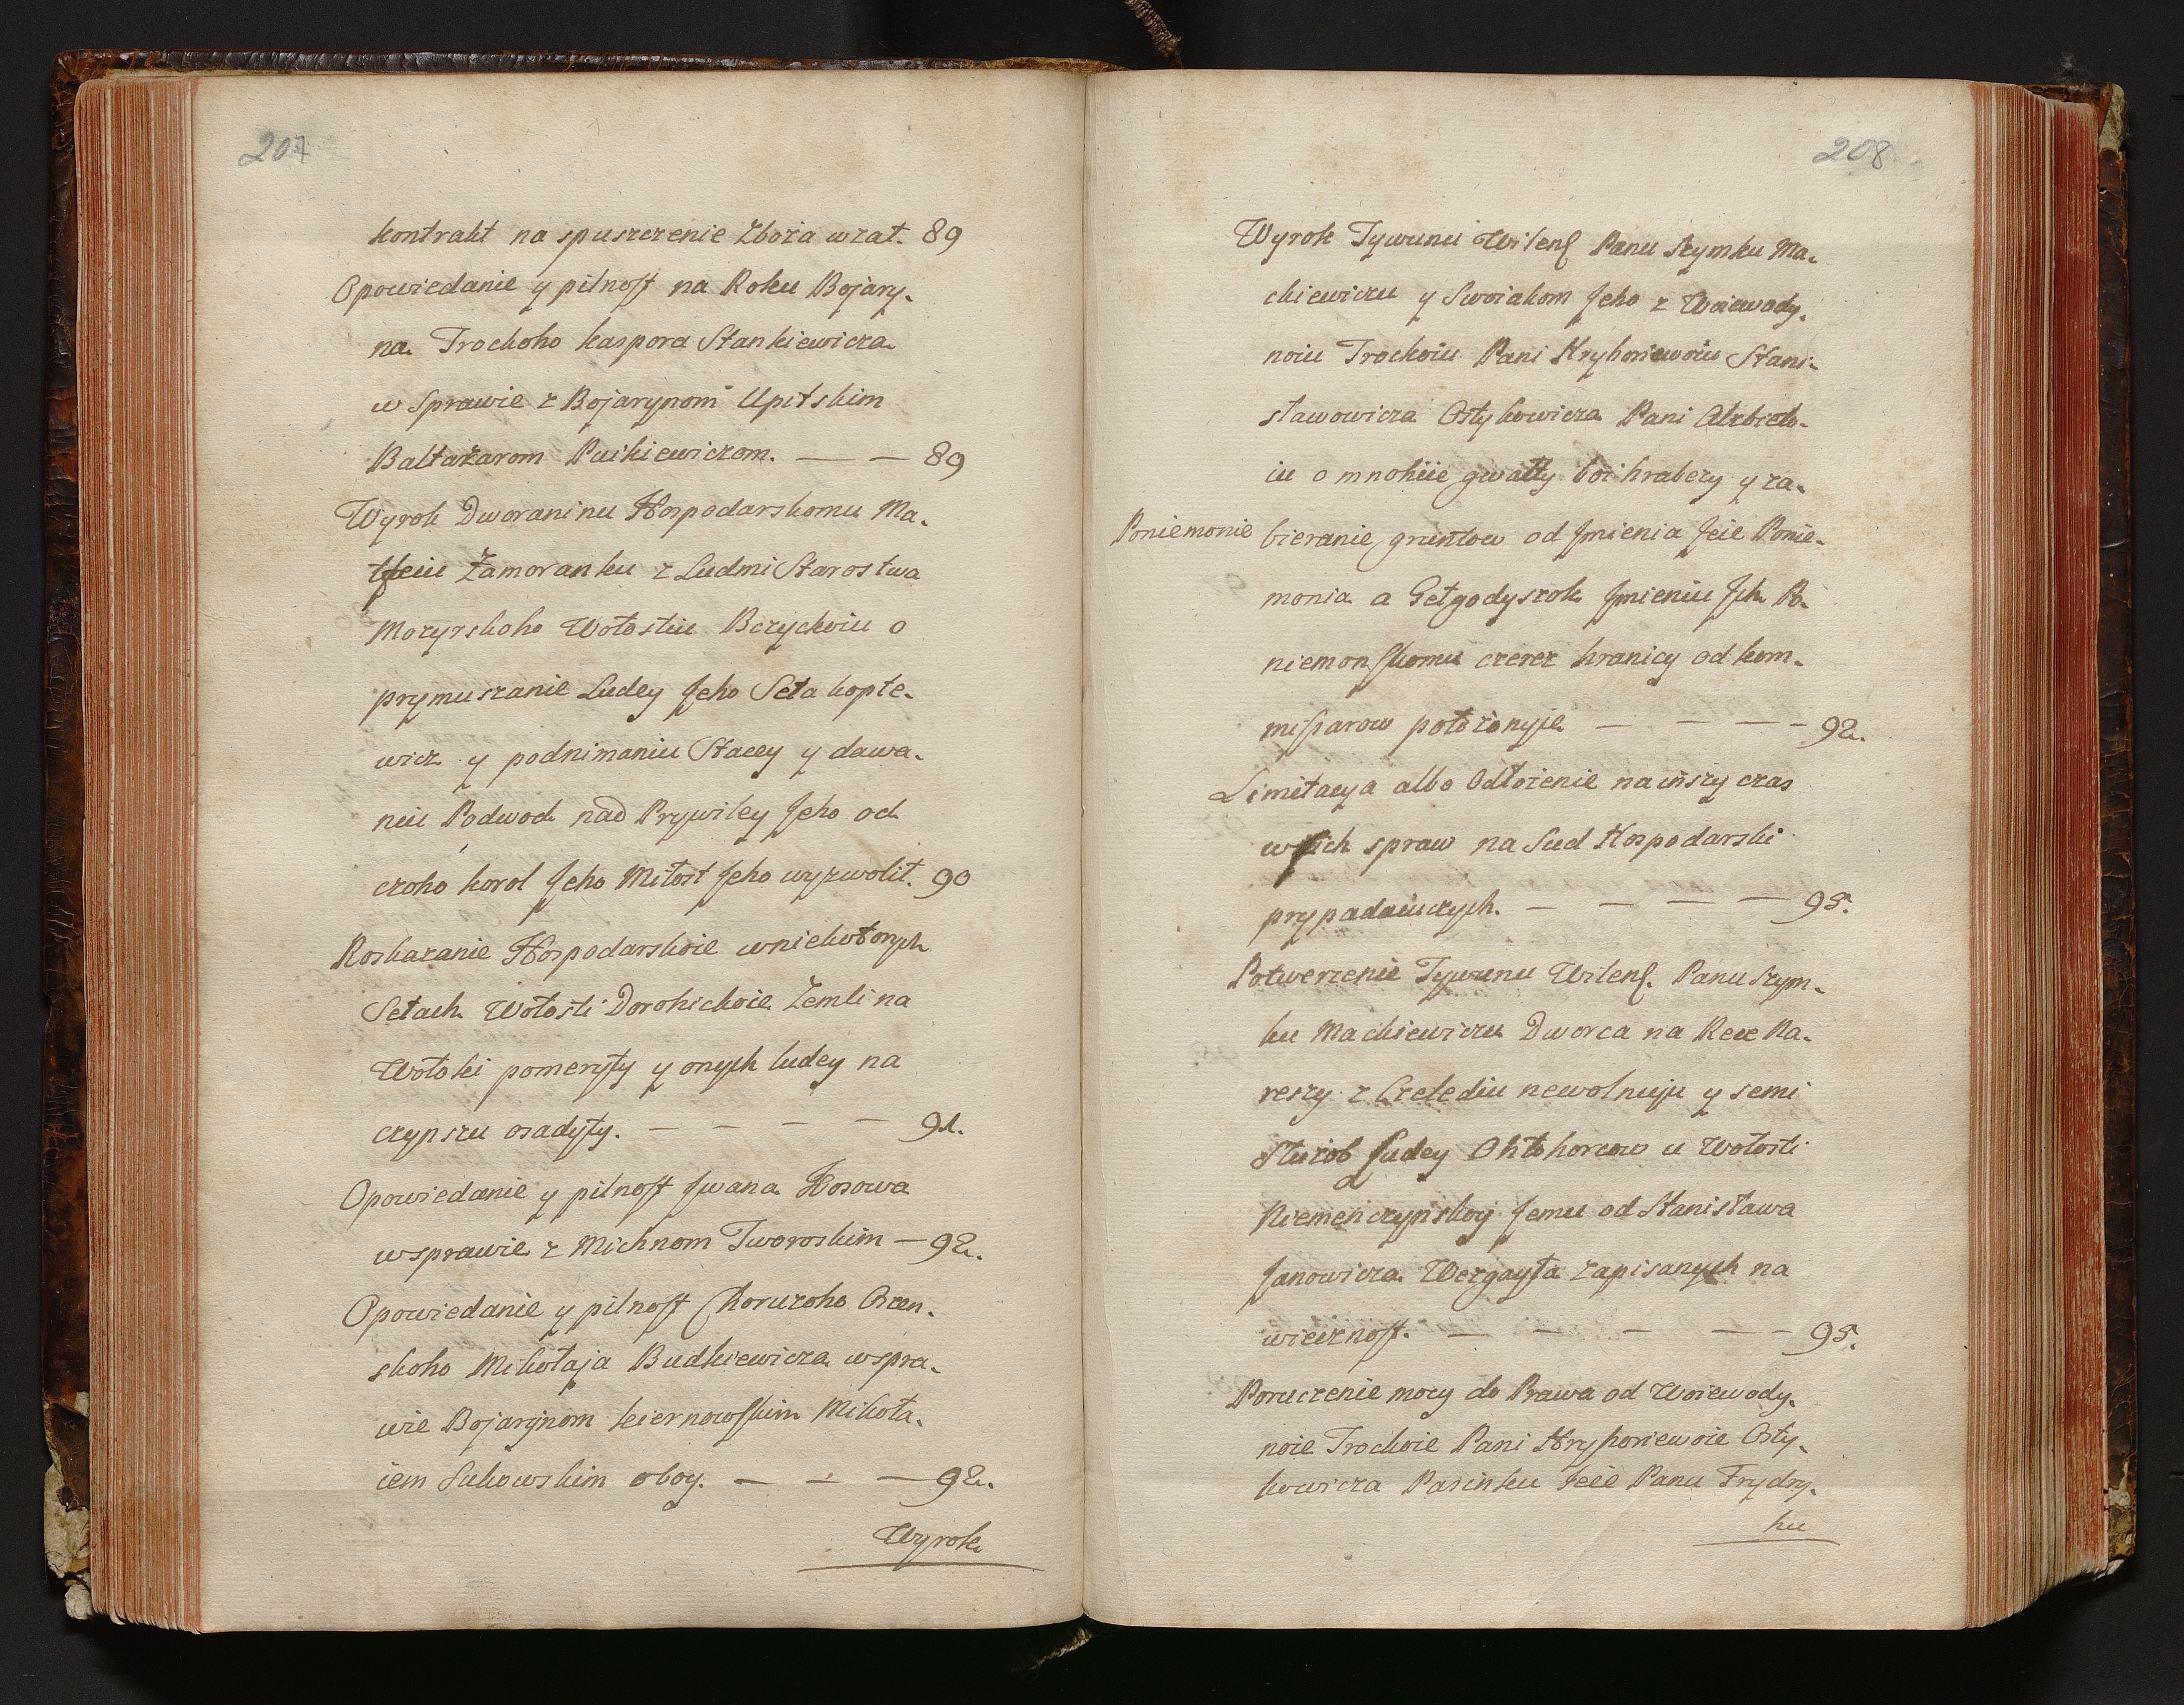 207
kontrakt na spuszczenie Zboża wzat. 89
Opowiedanie y pilnost na Roku Bojary-
na Trockoho kaspora Stankiewicza
w Sprawie z Bojarynom Upitskim
Baltazarom Puikiewiczom. — — 89
Wyrok Dworaninu Hospodarskomu Ma-
Zamoranku z Ludmi Starostwa
Mozyrskoho Wołostiu Bczyckoiu o
prymuszanie Ludey Jeho Seła kopte-
wicz y podnimaniu Stacey y dawa-
niu Podwod nad Prywiley Jeho od
czoho korol Jeho Miłost Jeho wyzwolił. 90
Roskazanie Hospodarskoie wniekotorych
Sełach Wołosti Dorohickoie Zemli na
Wołoki pomeryty y onych ludey na
czynszu osadyty. — — — — 91.
Opowiedanie y pilnost Jwana Hosowa
wsprawie z Michnom Tworoskim — 92.
Opowiedanie y pilnost Choruzoho Oszen-
skoho Mikołaja Budkiewicza wspra-
wie Bojarynom kiernowskim Mikoła-
iem Sukowskim oboy. — — — 92.
Wyrok
208
Wyrok Tywunu Wilens Panu Szymku Ma-
ckiewiczu y Swoiakom Jeho z Woiewody-
noiu Trockoiu Pani Hryhoriewoiu Stani-
sławowicza Ostykowicza Pani
iu o mnohiie gwałty boi hrabezy y za-
Poniemonie bieranie gruntow od Jmienia Jeie Ponie-
monia a Getgodyszok Jmieniu Jch Po-
niemonskomu czerez hranicy od kom-
misarow położonyje — — — — 92.
Limitacya albo Odłożenie na inszy czas
wsich spraw na Sud Hospodarski
prypadaiuczych. — — — — 95.
Potwerzenie Tywunu Wilens. Panu Szym-
ku Mackiewiczu Dworca na Rece Na-
reszy z Czelediu newolnuju y semi
Służob Ludey Ohtohorcow u Wołosti
Niemenczynskoy Jemu od Stanisława
Janowicza Wezgayła zapisanych na
wiecznost. — — — — — 95.
Poruczenie mocy do Prawa od Woiewody-
noie Trockoie Pani Hryhoriewoie Osty-
kowicza Pasinku Jeie Panu Frydry-
hu